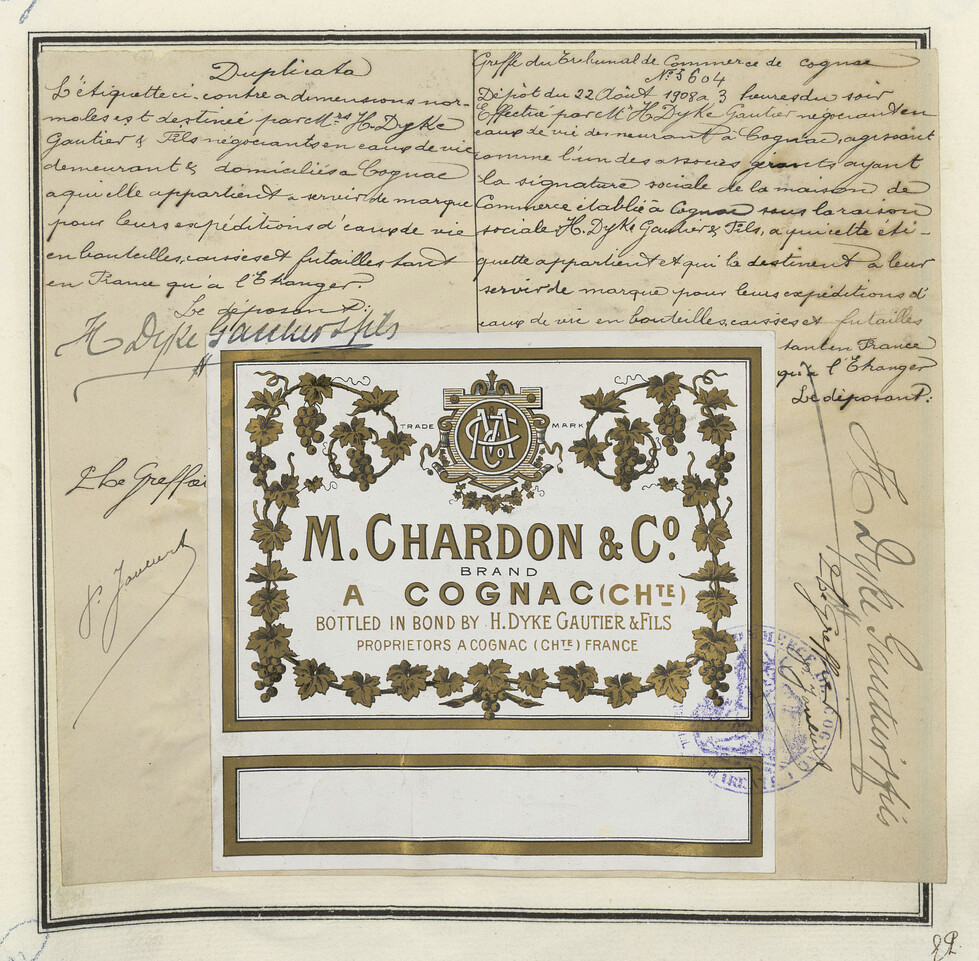 Duplicata
L'étiquette ci-contre a dimensions nor-
males est destinée par Mrs H. Dyke
Gautier & Fils négociants en eaux de vie
demeurant & domiciliés a Cognac
a qui elle appartient a servir de marque
pour leurs expéditions d'eaux de vie
en bouteilles, caisses et futailles tant
en France qu'à l'Etranger.
Le déposant:
H Dyke Gautier & fils
Le Greffier
Greffe du Tribunal de Commerce de Cognac
No 5604
Dépôt du 22 Août 1908 à 3 heures du soir
Effectué par Mr H. Dyke Gautier négociant en
eaux de vie demeurant à Cognac, agissant
comme l'un des associés gérants ayant
la signature sociale de la maison de
Commerce établie à Cognac sous la raison
sociale H. Dyke Gautier & Fils, a qui cette éti-
quette appartient et qui la destinent a leur
servir de marque pour leurs expéditions d'
eaux de vie en bouteilles, caisses et futailles
tant en France
qu'à l'Etranger
Le déposant:
H Dyke Gautier & fils
Le Greffier
TRADE MARK
M. CHARDON & Co.
BRAND
A COGNAC (CHTE)
BOTTLED IN BOND BY H. DYKE GAUTIER & FILS
PROPRIETORS A COGNAC (CHTE) FRANCE